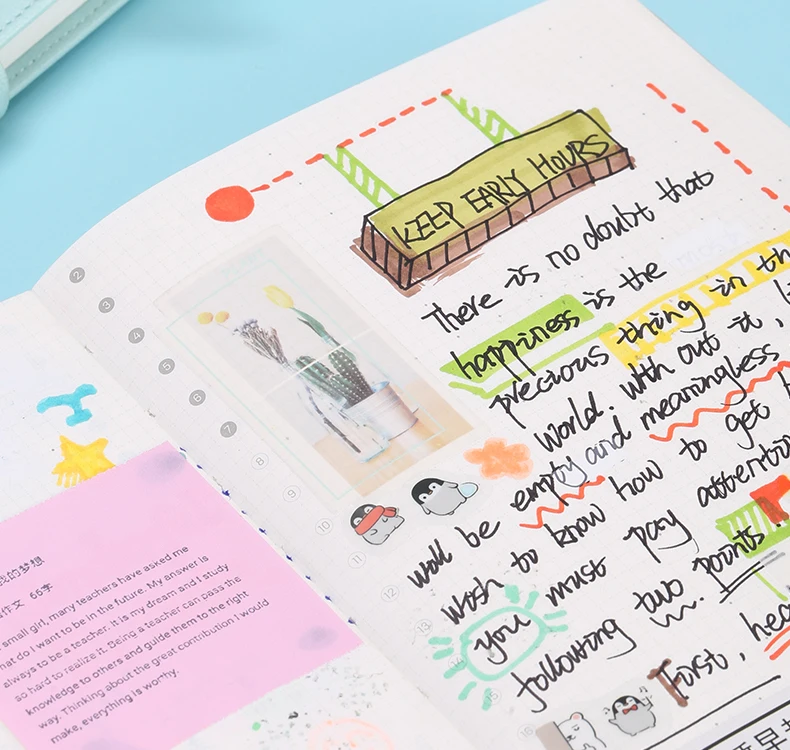 我的梦想
作文 66字
small girl, many teachers have asked me
what do I want to be in the future. My answer is
always to be a teacher. It is my dream and I study
so hard to realize it. Being a teacher can pass the
knowledge to others and guide them to the right
way. Thinking about the great contribution I would
make, everything is worthy.
2
3
4
5
6
7
8
9
10
11
12
13
15
KEEP EARLY HOURS
There is no doubt that
happiness is the
precious thing in th
world. with out it, l
will be empty and meaningless
wish to know how to get h
you must pay attentio
following two points:
First, hea
早